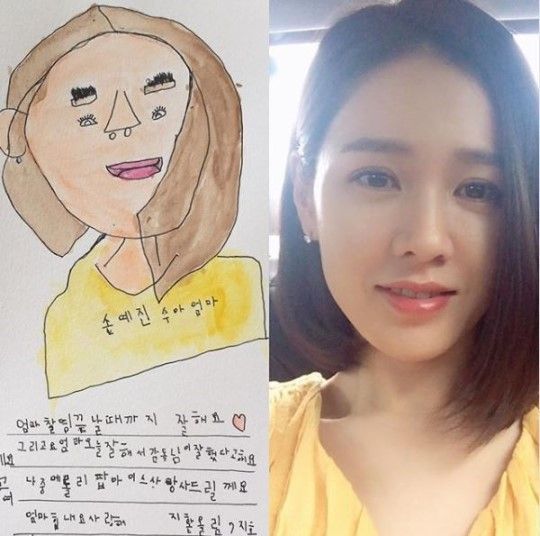 손예진 수아엄마
엄마 촬띵끝날때까지 잘해요
그리고요엄마오늘잘해서감동님이잘했다고해요
나중에롤리팝아이스사탕사드릴께요
엄마힘내요사랑해 지환올림 지호